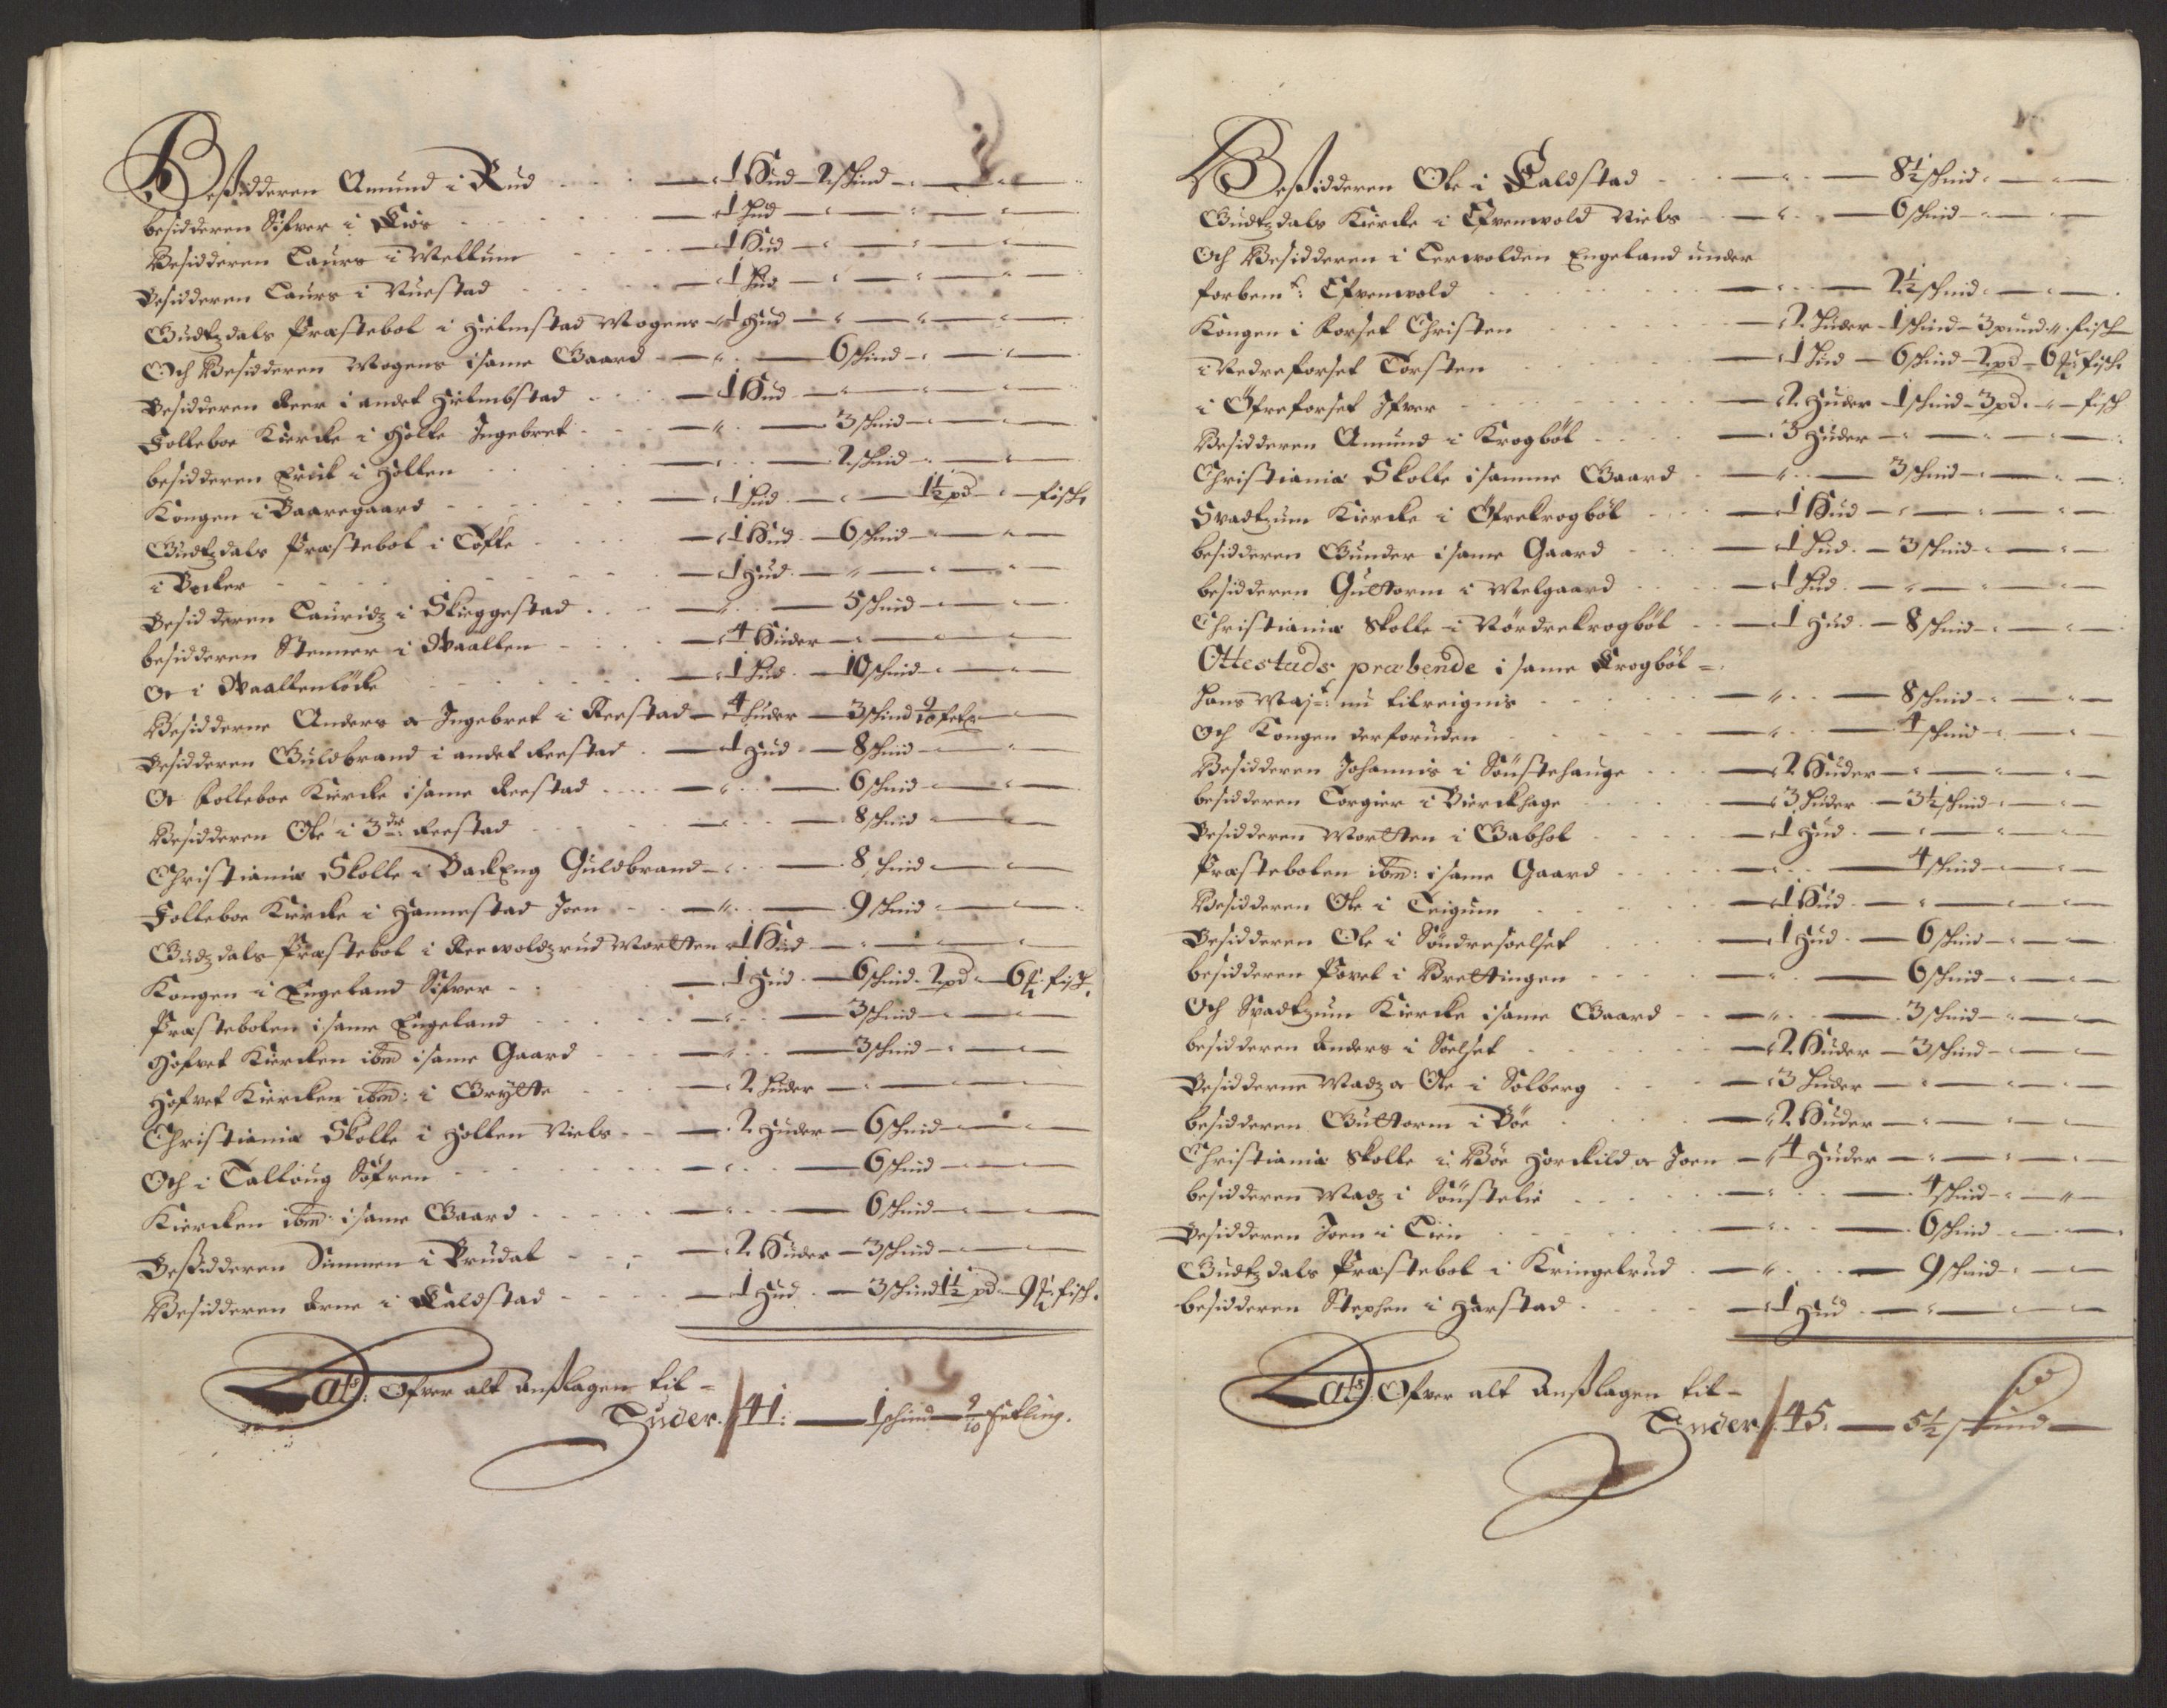 Besidderen Amund i Rud — 1 Hud — 2 schind —
besidderen Sifver i Kiös — 1 Hud —
Besidderen Laurs i Mellum — 1 Hud —
Besidderen Laurs i Ruestad — 1 Hud —
Gudtzdals Præstebol i Hielmstad Mogens — 1 Hud —
Och Besidderen Mogens i same Gaard — 6 schind —
Besidderen Peer i andet Hielmbstad — 1 Hud —
Folleboe Kiercke i Holte Ingebret — 3 schind —
besidderen Erick i Holten — 2 schind —
Kongen i Baaregaard — 1 Hud — 1½ pd — fisch
Gudtzdals Præstebol i Tofte — 1 Hud — 6 schind —
i Becker — 1 Hud —
Besidderen Lauridz i Skieggestad — 5 schind —
besidderen Stenner i Waallen — 4 Huder —
Oc i Waallenlöcke — 1 Hud — 10 schind —
Besidderne Anders oc Ingebret i Reestad — 4 Huder — 3 schind 9/10 fetl:
Besidderen Guldbrand i andet Reestad — 1 Hud — 8 schind —
Oc Folleboe Kiercke i same Reestad — 6 schind —
Besidderen Ole i 3die Reestad — 8 schind —
Christiania Skolle i BackEng Guldbrand — 8 schind —
Folleboe Kiercke i Hannestad Joen — 9 schind —
Gudzdals Præstebol i Reewoldzrud Mortten — 1 Hud —
Kongen i Engeland Sifver — 1 Hud — 6 schind — 2 pd — 6 ℔ fisch
Præstebolen i same Engeland — 3 schind —
Hofvet Kiercken ibm i same Gaard — 3 schind —
Hofvet Kiercken ibm: i Grytte — 2 Huder —
Christiania Skolle i Holten Niels — 2 Huder — 6 schind —
Och i Talloug Söfren — 6 schind —
Kiercken ibm: i same Gaard — 6 schind —
Besidderen Simmen i Brudal — 2 Huder — 3 schind —
Besidderen Arne i Kaldstad — 1 Hud — 3 schind 1½ pd — 9 ℔ fisch
Lats: Ofver alt Anslagen til —
Huder. 41: — 1 schind — 9/10 Fetling.
Besidderen Ole i Kaldstad — 8½ schind —
Gudtzdals Kiercke i Efvenwold Niels — 6 schind —
Och Besidderen i Lerwolden Engeland under
forbemt: Efvenwold — 2½ schind —
Kongen i Forset Christen — 2 Huder — 1 schind — 3 pund — fisch
i Nedreforset Torsten — 1 Hud — 6 schind — 2 pd — 6 ℔ fisch
i Öfreforset Ifver — 2 Huder — 1 schind — 3 pd — fisch
Besidderen Amund i Krogböl — 3 Huder —
Christiania Skolle i samme Gaard — 3 schind —
Svadtzum Kiercke i Öfrekrogböl — 1 Hud —
besidderen Gunder i same Gaard — 1 Hud — 3 schind —
besidderen Guttorm i Melgaard — 1 Hud —
Christiania Skolle i Nördrekrogböl — 1 Hud — 8 schind —
Ottestads præbende i same Krogböl —
Hans Mayt: nu tileignis — 8 schind —
Och Kongen derforuden — 4 schind —
Besidderen Johannis i Sönstehauge — 2 Huder —
besidderen Torgier i Bierckhage — 3 Huder — 3½ schind —
Besidderen Mortten i Gabhol — 1 Hud —
Præstebolen ibm: i same Gaard — 4 schind —
Besidderen Ole i Teigum — 1 Hud —
Besidderen Ole i Söndresoelset — 1 Hud — 6 schind —
besidderen Povel i Brettingen — 6 schind —
Och Svadtzum Kiercke i same Gaard — 3 schind —
besidderen Anders i Soelset — 2 Huder — 3 schind —
Besidderne Madz oc Ole i Solberg — 3 Huder —
besidderen Guttorm i Böe — 2 Huder —
Christiania Skolle i Böe Horckild oc Joen — 4 Huder —
besidderen Madz i Sönstelie — 4 schind —
Besidderen Joen i Lien — 6 schind —
Gudtzdals Præstebol i Kringelrud — 9 schind —
besidderen Stephen i Harstad — 1 Hud —
Lats: Ofver alt Anslagen til —
Huder 45. — 5½ schind —